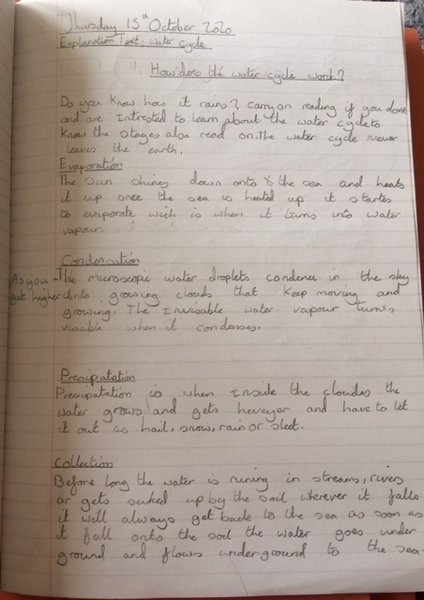 Thursday 15th October 2020
Explanation Text: Water cycle
How does the water cycle work?
Do you know how it rains? carry on reading if you dont
and are Intrested to learn about the water cycle to
know the stages also read on. The water cycle never
leaves the earth.
Evaporation
The sun shines down onto the sea and heats
it up once the sea is heated up it startes
to evaporate wich is when it turns into water
vapour.
Condensation
As you
get higher
The microscopic water droplets condence in the sky
into growing clouds that keep moving and
growing. The Invisable water vapour turns
visable when it condenses.
Presipatation
Presipatation is when Inside the cloudes the
water grows and gets heveyer and have to let
it out as hail, snow, rain or sleet.
Collection
Before long the water is runing in streams, rivers
or gets suked up by the soil wherever it falls
it will always get back to the sea as soon as
it fall onto the soil the water goes under
ground and flows underground to the sea.